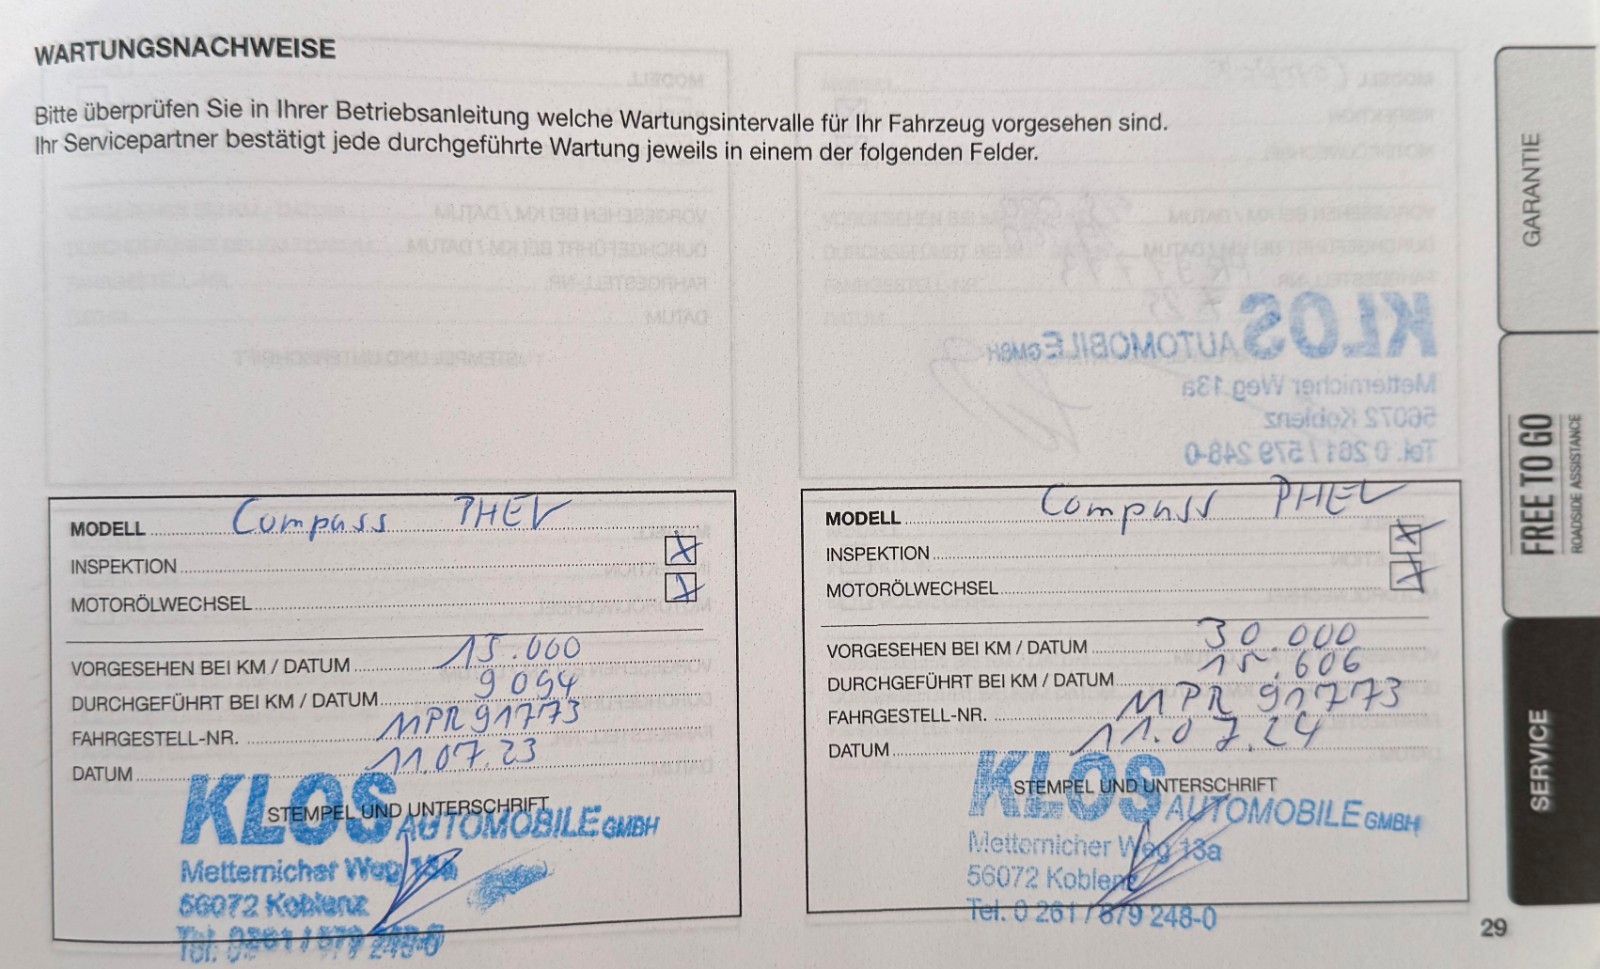 WARTUNGSNACHWEISE
Bitte überprüfen Sie in Ihrer Betriebsanleitung welche Wartungsintervalle für Ihr Fahrzeug vorgesehen sind.
Ihr Servicepartner bestätigt jede durchgeführte Wartung jeweils in einem der folgenden Felder.
MODELL Compass PHEV
INSPEKTION X
MOTORÖLWECHSEL X
VORGESEHEN BEI KM / DATUM 15.000
DURCHGEFÜHRT BEI KM / DATUM 9054
FAHRGESTELL-NR. MPR91773
DATUM 11.07.23
STEMPEL UND UNTERSCHRIFT
KLOS AUTOMOBILE GMBH
Metternicher Weg 13a
56072 Koblenz
Tel. 0261 / 579 248-0
MODELL Compass PHEV
INSPEKTION X
MOTORÖLWECHSEL X
VORGESEHEN BEI KM / DATUM 30.000
DURCHGEFÜHRT BEI KM / DATUM 15.606
FAHRGESTELL-NR. MPR 91773
DATUM 11.07.24
STEMPEL UND UNTERSCHRIFT
KLOS AUTOMOBILE GMBH
Metternicher Weg 13a
56072 Koblenz
Tel. 0 261 / 579 248-0
GARANTIE
FREE TO GO
ROADSIDE ASSISTANCE
SERVICE
29